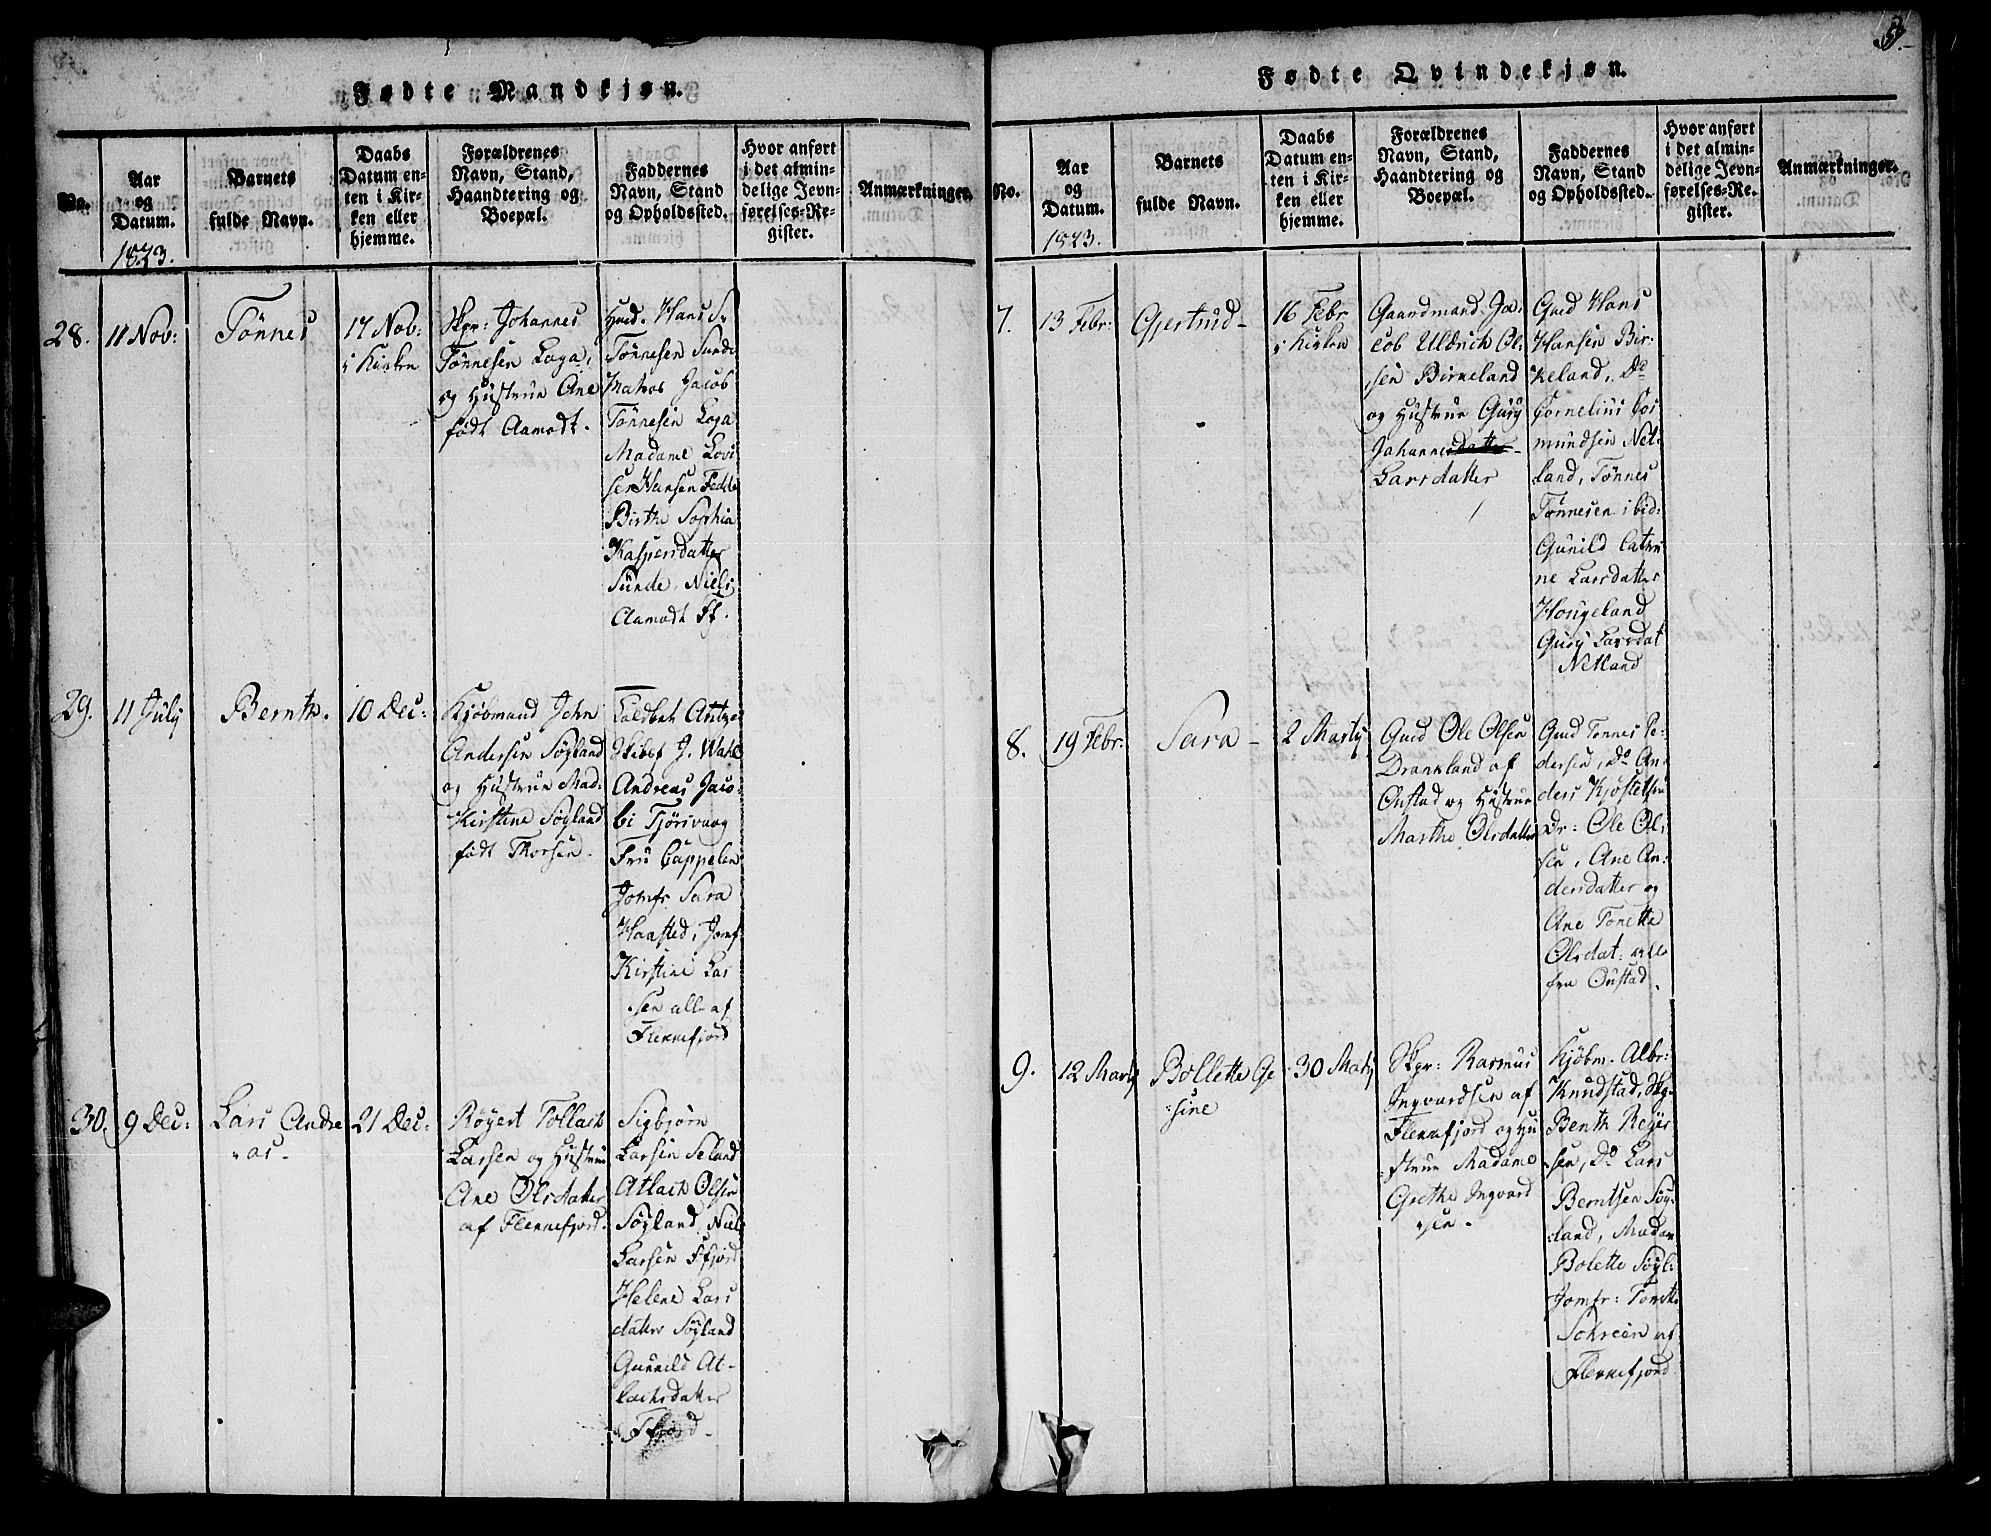 Fødte Mandkjøn.
No.
Aar
og
Datum.
1823.
Barnets
fulde Navn.
Daabs
Datum en-
ten i Kir-
ken eller
hjemme.
Forældrenes
Navn, Stand,
Haandtering og
Boepæl.
Faddernes
Navn, Stand
og Opholdssted.
Hvor anført
i det almin-
delige Jevn-
førelses-Re-
gister.
Anmærkninger.
28.
11 Nov:
Tönnes
17 Nov:
i Kirken
Skpr: Johannes
Tönnesen Loga,
og Hustrue Ane
födt Aamodt.
Hans
Tönnesen Sunde
Matros Jacob
Tönnesen Loga
Madame Lovi
se Hansen Fedde
Birthe Sophia
Kaspersdatter
Sunde, Niels
Aamodt Ff.
29.
11 July
Bernth.
10 Dec:
Kjöbmand John
Andersen Söyland
og Hustrue Mad:
Kirstine Söyland
födt Thorsen.
J. Wahl
Andreas Jaco-
bi Tjörsvaag
Fru Cappelen
Jomfr Sara
Haasted, Jomf
Kirstine Lar
sen alle af
Flekkefjord
30.
9 Dec:
Lars Andre
as.
21 Dec:
Röyert Tollach
Larsen og Hustrue
Ane Olsdatter
af Flekkefjord.
Sigbjörn
Larsen Seland
Atlach Olsen
Söyland, Niels
Larsen Ffjord
Helene Lars
datter Söyland
Gunnild At-
lachsdatter
Ffjord.
Fødte Qvindekjøn.
No.
Aar
og
Datum.
1823.
Barnets
fulde Navn.
Daabs
Datum en-
ten i Kir-
ken eller
hjemme.
Forældrenes
Navn, Stand,
Haandtering og
Boepæl.
Faddernes
Navn, Stand
og Opholdssted.
Hvor anført
i det almin-
delige Jevn-
førelses-Re-
gister.
Anmærkninger.
7.
13 Febr:
Gjertrud
16 Febr
i Kirken
Gaardmand Ja-
cob Uldrich Ol-
sen Birkeland
og Hustrue Gury
Johannesdatter
Larsdatter
Gmd Hans
Hansen Bir-
keland, Do
Cornelius Os
mundsen Net-
land, Tönnes
Tönnesen ibid:
Gunild Cathri
ne Larsdatter
Hougeland
Gury Larsdat
Netland
8.
19 Febr:
Sara
2 Martj
Gmd Ole Olsen
Drankland af
Önstad og Hustrue
Marthe Olsdatter
Gmd Tönnes Pe-
dersen, Do An-
ders Kjöstelsen
Dr: Ole Ol-
sen, Ane An-
dersdatter og
Ane Tonette
Olsdat: alle
fra Önstad.
9.
12 Martj
Bollette Ge
sine
30 Martj
Skpr: Rasmus
Ingvardsen af
Flekkefjord og Hu
strue Madame
Grethe Ingvard
sen.
Kjöbm. Albr:
Knudstad, Skp.
Benth Reyer
sen, Do Lars
Berntsen Söy-
land, Madam
Bolette Söyl:
Jomfr: Tonette
af
Flekkefjord